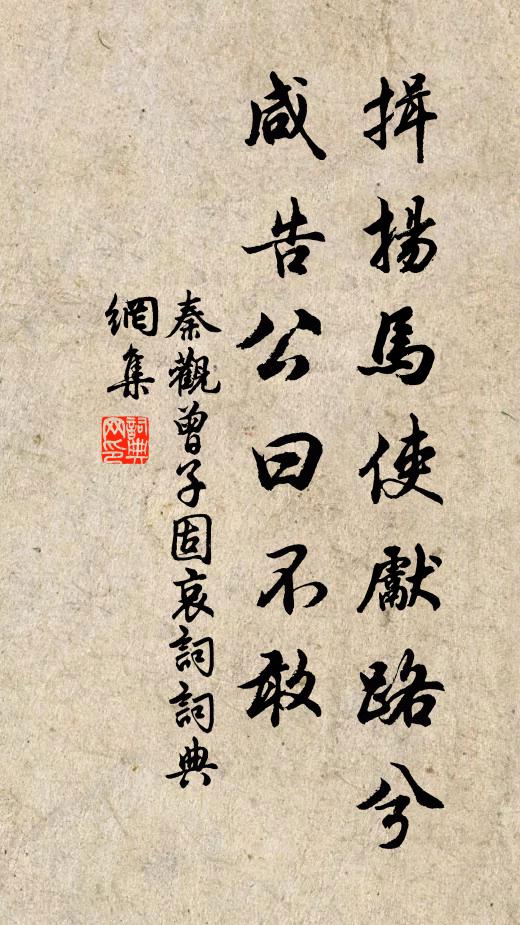 揖揚馬使獻路兮
咸告公曰不敢
秦觀曾子固哀詞詞典
網集
詞典
网印